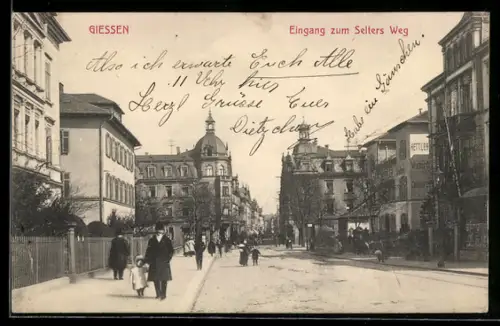 GIESSEN
Eingang zum Selters Weg
Also ich erwarte Euch Alle
11 Uhr hier
Herzl Grüsse Eues
Dietzchen
Habt ein Gänschen.
HETTLER